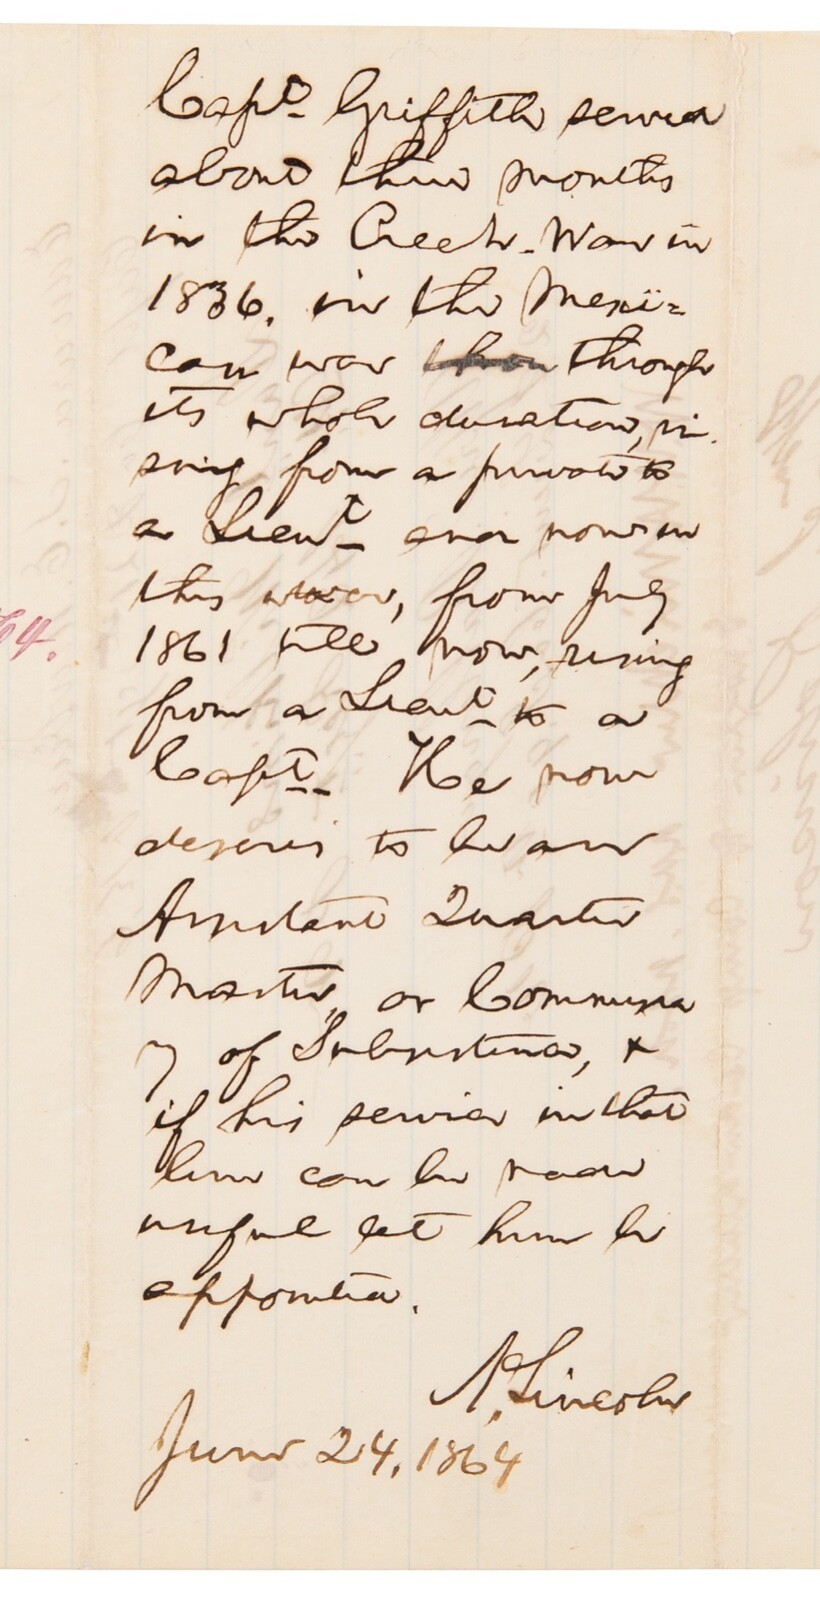 Capt. Griffith served
about three months
in the Creek-War in
1836. in the Mexi=
can war through
its whole duration, ri-
sing from a private to
a Lieut. and now in
this war, from July
1861 till now, rising
from a Lieut. to a
Capt. He now
desires to be an
Assistant Quarter
Master, or Commissa
ry of Subsistence, &
if his service in that
line can be made
useful let him be
appointed.
A. Lincoln
June 24, 1864
64.